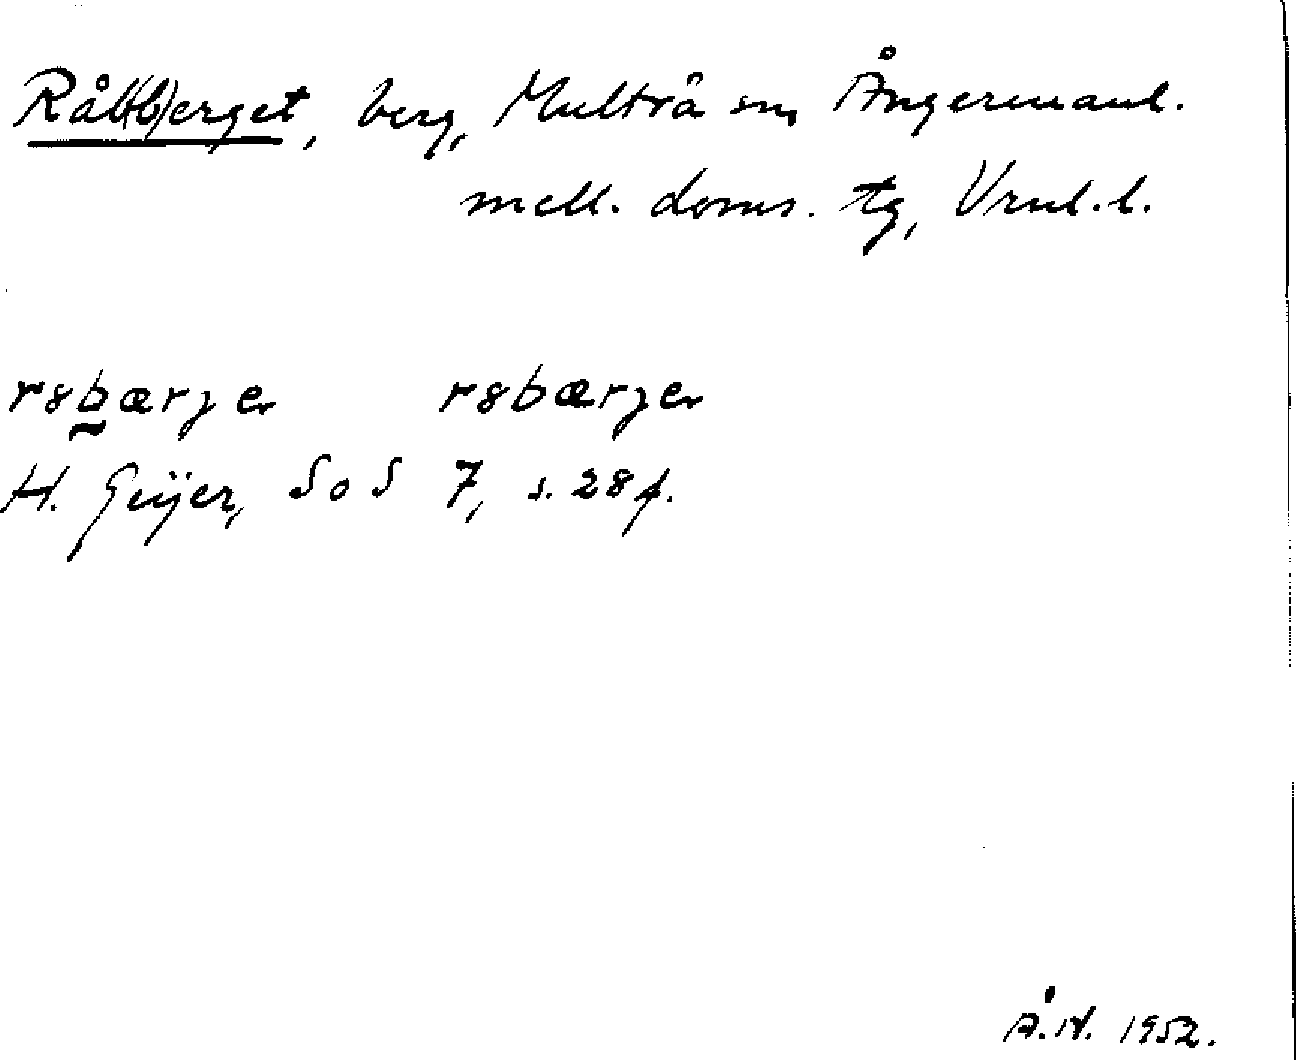 Råb(b)erget, berg, Multrå sn, Ångermanl.
mell. doms. tg, Vrnl. l.
r8bærjen r8bærjen
H. Geijer, SoS 7, s. 28 f.
Å.N. 1952.